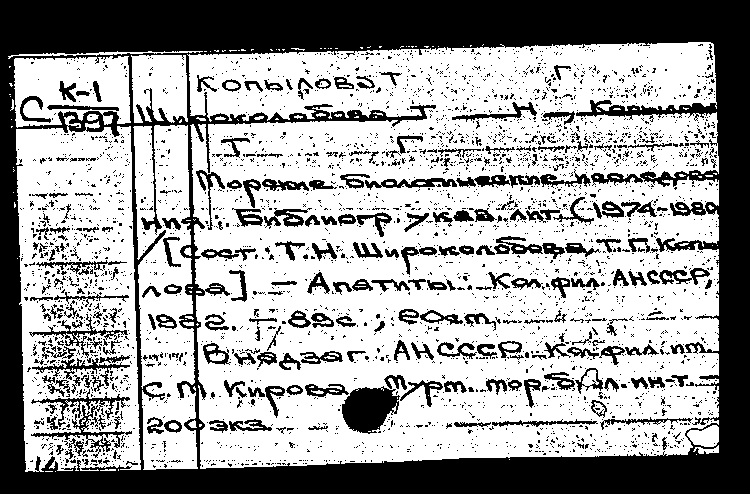 Копылова, Т Г
С К-1
1397
Широколобова, Т Н, Копылова
Т Г
Морские биологические исследова
ния: Библиогр. указ. лит. (1974-1980
/[Сост.: Т.Н. Широколобова, Т.Г. Копы
лова]. — Апатиты: Кол. фил. АНСССР,
1982. — 89с.; 20см.
В надзаг.: АНСССР. Кол. фил. им.
С.М. Кирова. Мурм. мор. биол. ин-т. —
200экз.